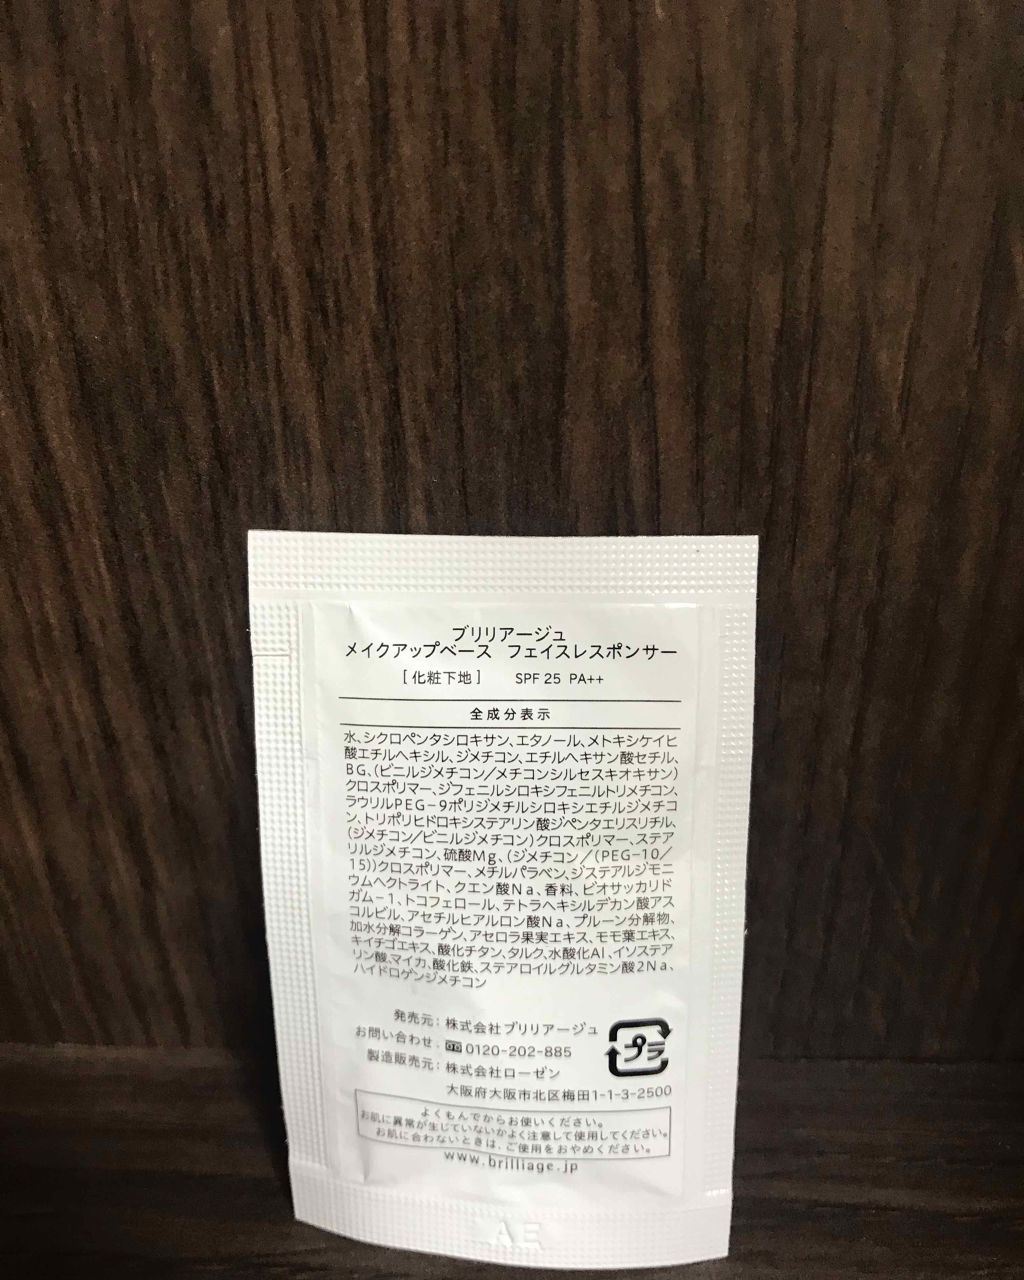 ブリリアージュ
メイクアップベース フェイスレスポンサー
[化粧下地] SPF 25 PA++
全成分表示
水、シクロペンタシロキサン、エタノール、メトキシケイヒ
酸エチルヘキシル、ジメチコン、エチルヘキサン酸セチル、
BG、(ビニルジメチコン/メチコンシルセスキオキサン)
クロスポリマー、ジフェニルシロキシフェニルトリメチコン、
ラウリルPEG-9ポリジメチルシロキシエチルジメチコ
ン、トリポリヒドロキシステアリン酸ジペンタエリスリチル、
(ジメチコン/ビニルジメチコン)クロスポリマー、ステア
リルジメチコン、硫酸Mg、(ジメチコン/(PEG-10/
15))クロスポリマー、メチルパラベン、ジステアルジモニ
ウムヘクトライト、クエン酸Na、香料、ビオサッカリド
ガム-1、トコフェロール、テトラヘキシルデカン酸アス
コルビル、アセチルヒアルロン酸Na、プルーン分解物、
加水分解コラーゲン、アセロラ果実エキス、モモ葉エキス、
キイチゴエキス、酸化チタン、タルク、水酸化Al、イソステア
リン酸、マイカ、酸化鉄、ステアロイルグルタミン酸2Na、
ハイドロゲンジメチコン
発売元：株式会社ブリリアージュ
お問い合わせ：0120-202-885
製造販売元：株式会社ローゼン
大阪府大阪市北区梅田1-1-3-2500
プラ
よくもんでからお使いください。
お肌に異常が生じていないかよく注意して使用してください。
お肌に合わないときは、ご使用をおやめください。
www.brilliage.jp
AE